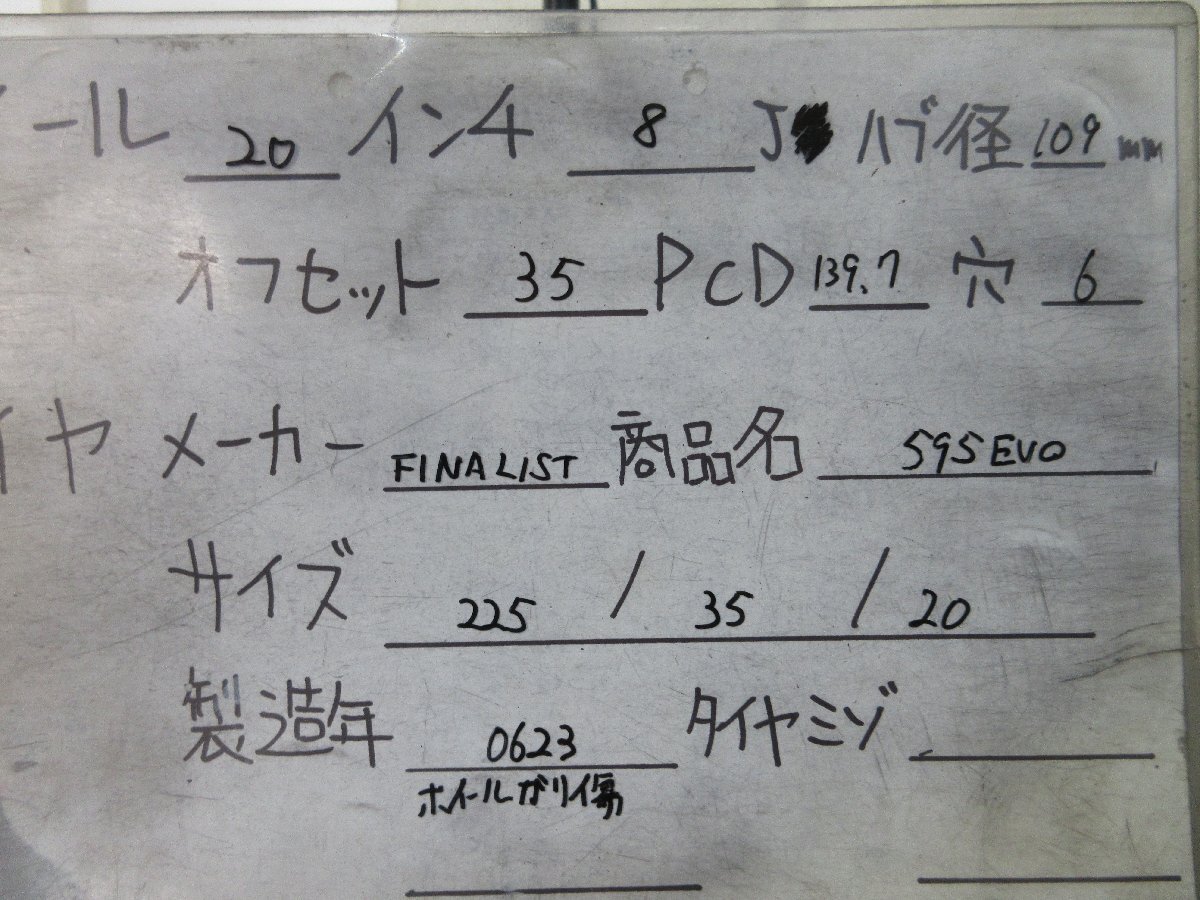 ール 20 インチ 8 J ハブ径 109 mm
オフセット 35 PCD 139.7 穴 6
イヤ メーカー FINALIST 商品名 595EVO
サイズ 225 / 35 / 20
製造年 0623 タイヤミゾ
ホイールガリ傷